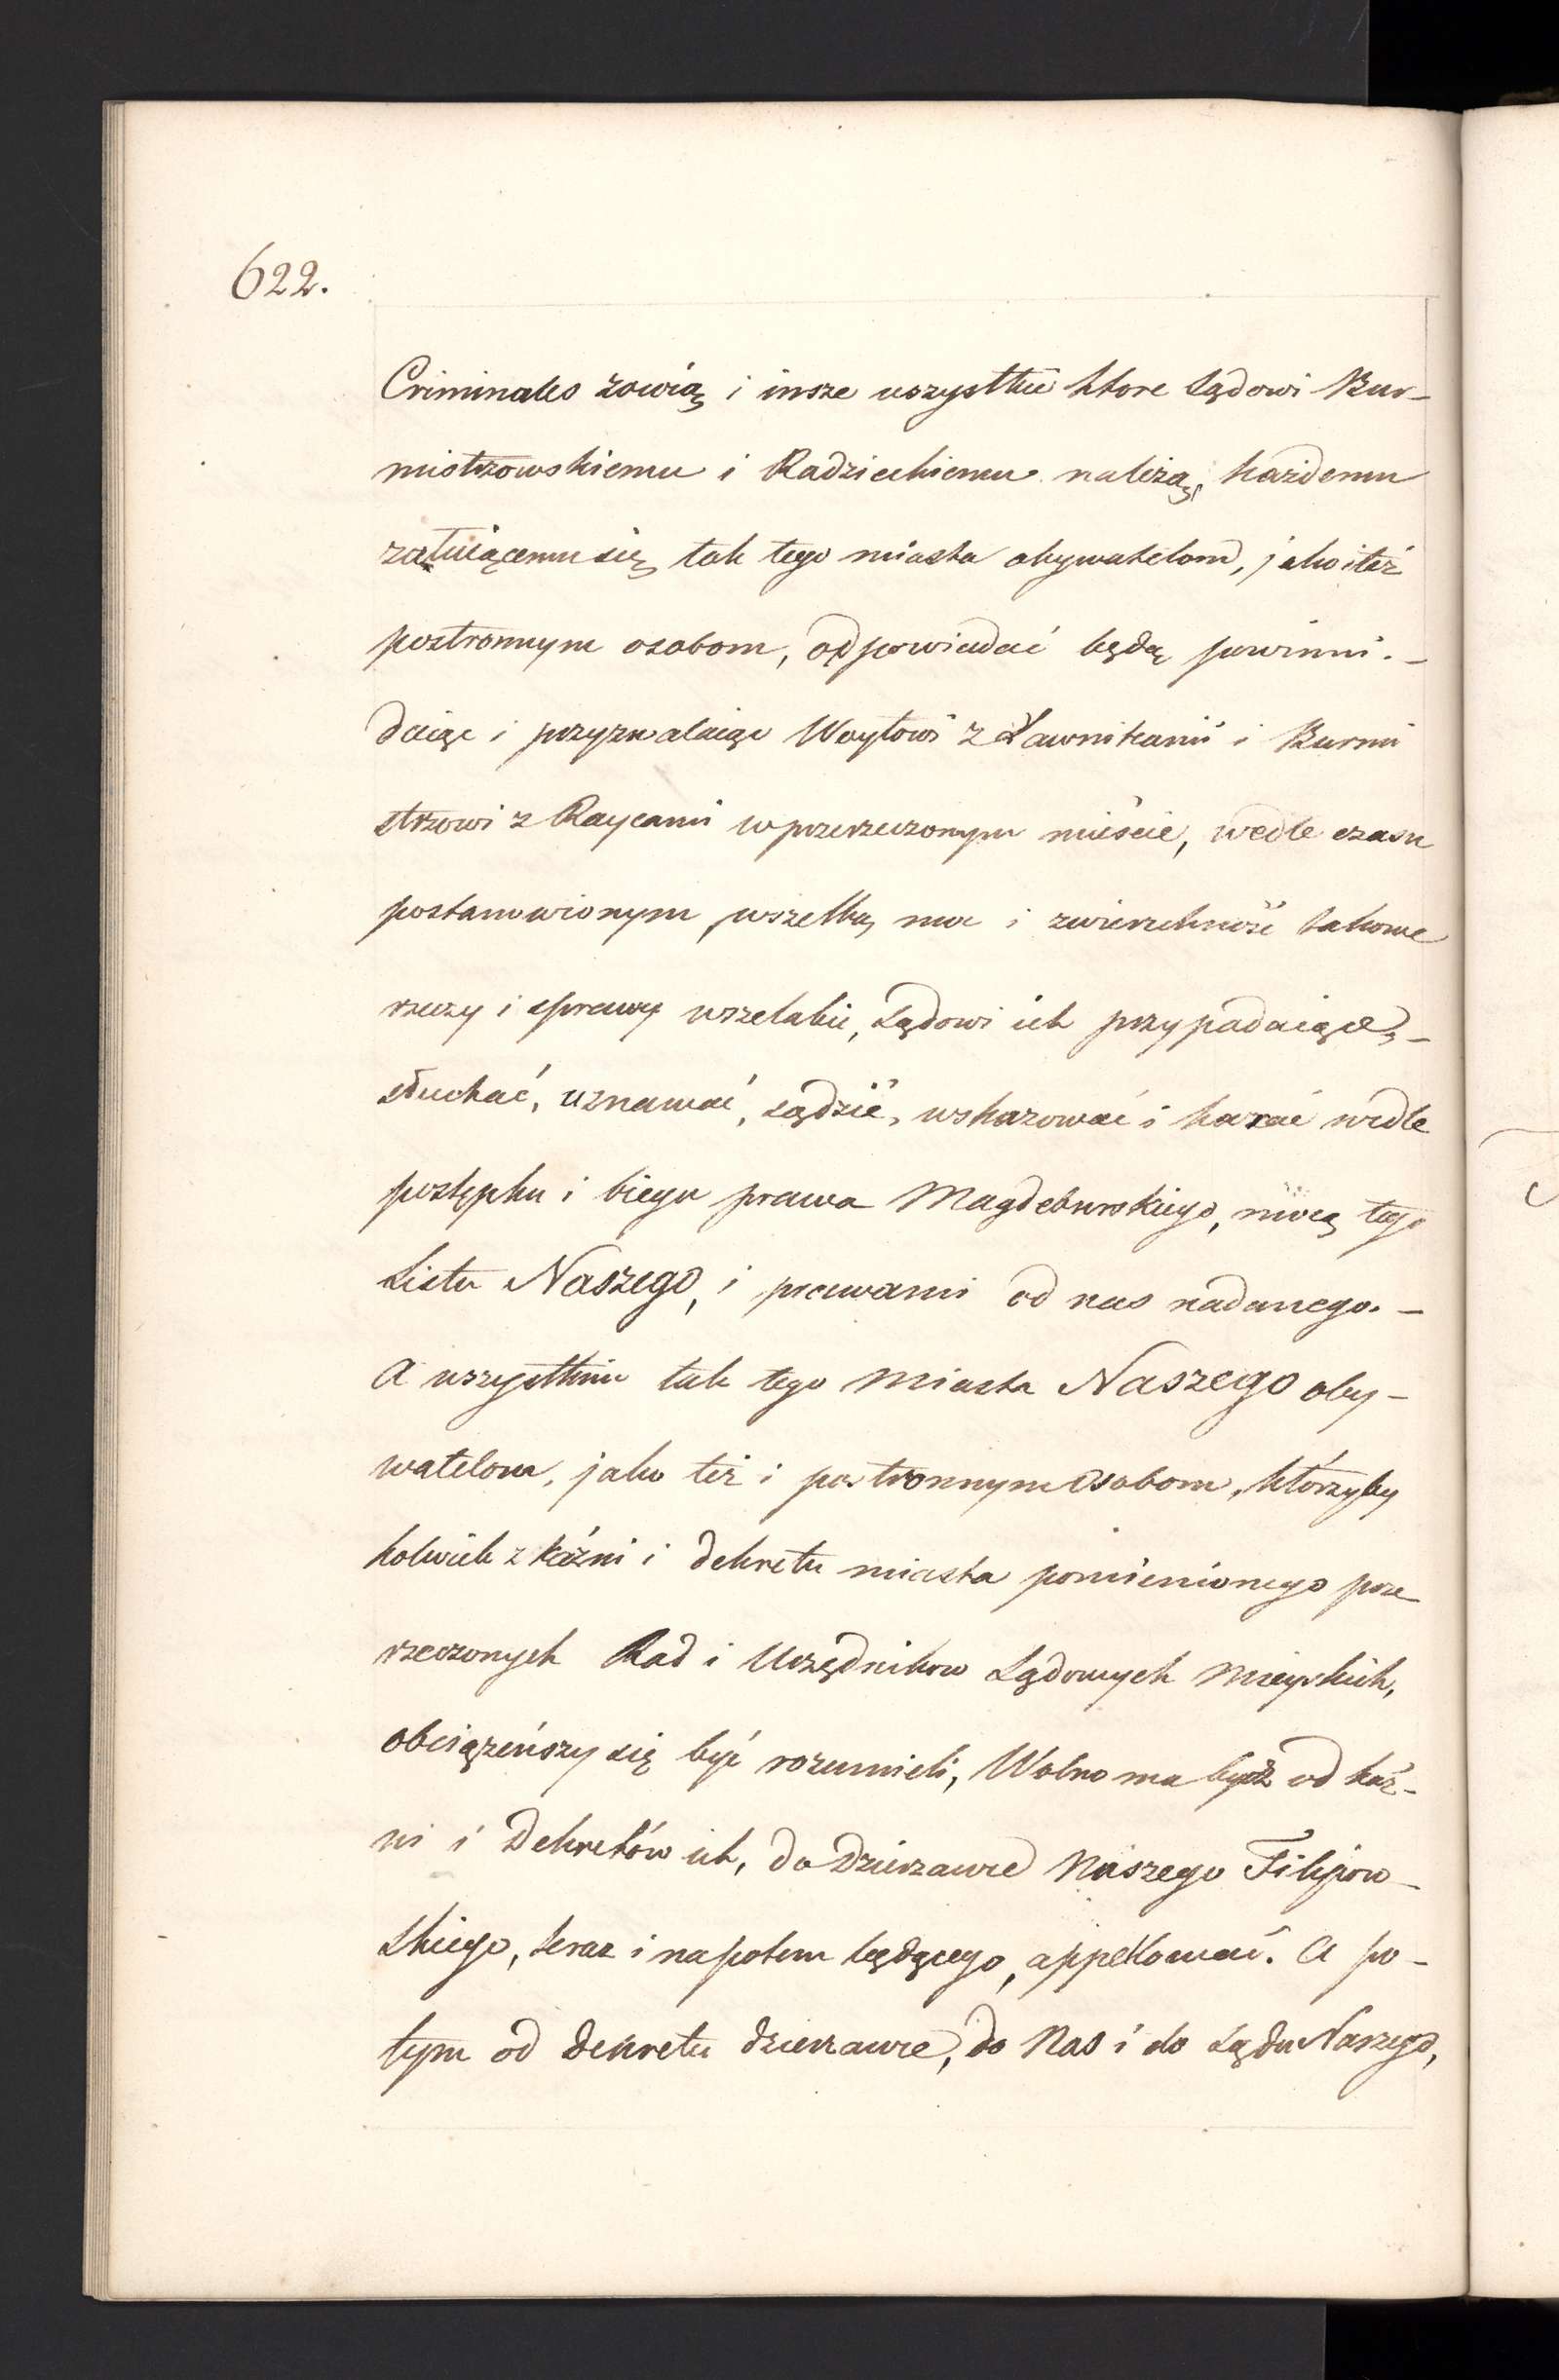 622.
Criminales zowią i insze wszystkie ktore Sądowi Bur-
mistrzowskiemu i Radzieckiemu należą, każdemu
załuiącemu się tak tego miasta obywatelom, jako i też
postronnym osobom, odpowiadać będą powinni. -
daiąc i przyzwalaiąc Woytowi z Ławnikami i Burmi
strzowi z Raycami w przerzeczonym mieście, wedle czasu
postanowionym, wszelką moc i zwierzchność takowe
rzeczy i sprawy wszelakie, Sądowi ich przypadaiące, -
słuchać, uznawać, sądzić, wskazować i karać wedle
postępku i biegu prawa Magdeburskiego, mocą tego
Listu Naszego, i prawami od nas nadanego. -
A wszystkim tak tego Miasta Naszego oby-
watelom, jako też i postronnym osobom, którzyby
kolwiek z kaźni i dekretu miasta pomienionego prze
rzeczonych Rad i Urzędnikow Sądowych Mieyskich,
obciążeńszy się być rozumieli, Wolno ma bydź od kaź-
ni i Dekretów ich, do Dzierzawce Naszego Filipow-
skiego, teraz i napotem będącego, appellować. A po-
tym od Dekretu dzierzawce, do Nas i do Sądu Naszego,